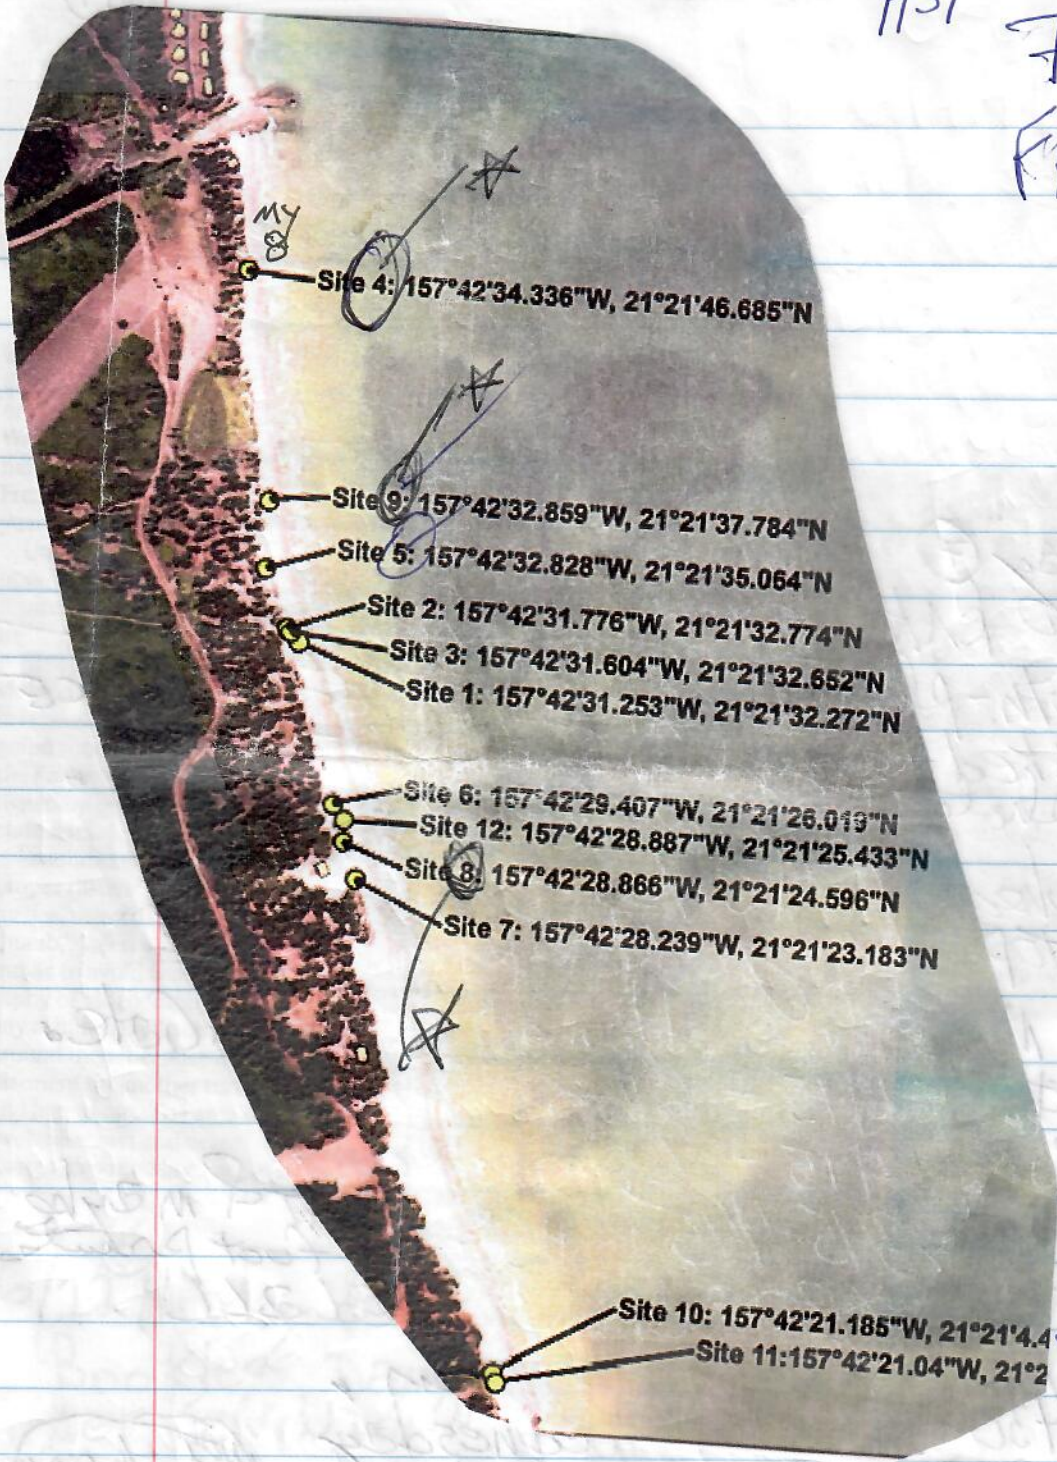 1131
MY
8
Site 4: 157°42'34.336"W, 21°21'46.685"N
Site 9: 157°42'32.859"W, 21°21'37.784"N
Site 5: 157°42'32.828"W, 21°21'35.064"N
Site 2: 157°42'31.776"W, 21°21'32.774"N
Site 3: 157°42'31.604"W, 21°21'32.652"N
Site 1: 157°42'31.253"W, 21°21'32.272"N
Site 6: 157°42'29.407"W, 21°21'26.019"N
Site 12: 157°42'28.887"W, 21°21'25.433"N
Site 8: 157°42'28.866"W, 21°21'24.596"N
Site 7: 157°42'28.239"W, 21°21'23.183"N
Site 10: 157°42'21.185"W, 21°21'4.4
Site 11:157°42'21.04"W, 21°2